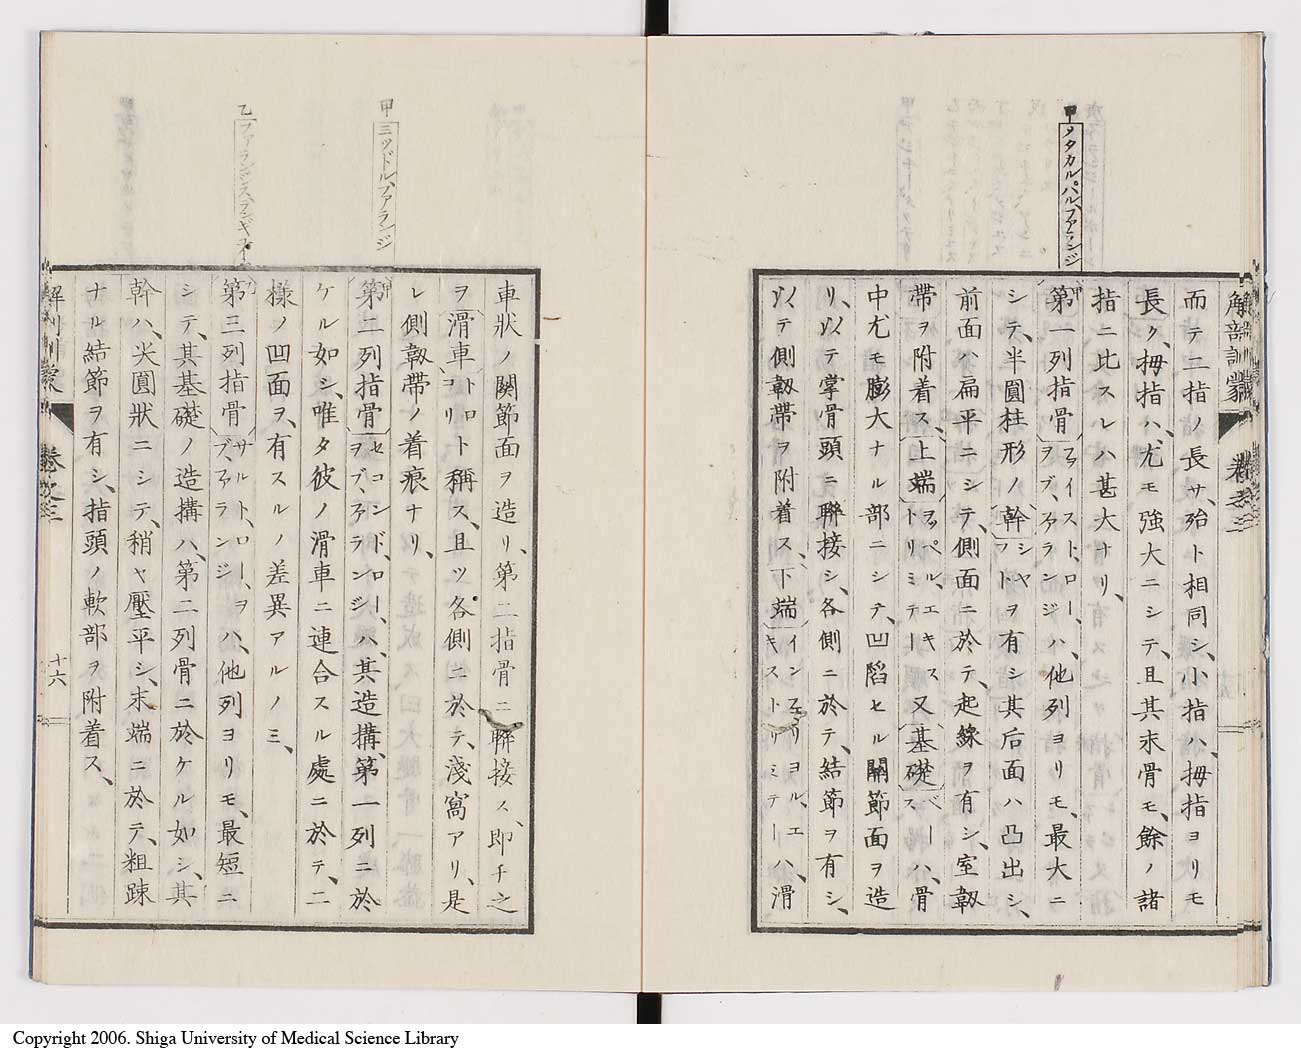 甲メタカルパル、ファランジ
解剖訓蒙 卷之三
而テ二指ノ長サ、殆ト相同シ、小指ハ、拇指ヨリモ
長ク、拇指ハ、尤モ強大ニシテ、且其末骨モ、餘ノ諸
指ニ比スルハ甚大ナリ、
第一列指骨〔ファイスト、ロー、ヲブ、ファランジ〕ハ、他列ヨリモ、最大ニ
シテ、半圓柱形ノ幹〔シャフト〕ヲ有シ其后面ハ凸出シ、
前面ハ扁平ニシテ、側面ニ於テ、起線ヲ有シ、室韌
帶ヲ附着ス、上端〔ヲッペル、エキストリミテー〕又基礎〔ベース〕ハ、骨
中尤モ膨大ナル部ニシテ、凹陷セル關節面ヲ造
リ、以テ掌骨頭ニ聯接シ、各側ニ於テ、結節ヲ有シ、
以テ側韌帶ヲ附着ス、下端〔インフェリヨル、エキストリミテー〕ハ、滑
甲ミッドル、ファランジ
乙ファランジス、ランギュイ
車狀ノ關節面ヲ造リ、第二指骨ニ聯接ス、即チ之
ヲ滑車〔トロコリ〕ト稱ス、且ツ各側ニ於テ、淺窩アリ、是
レ側韌帶ノ着痕ナリ、
甲第二列指骨〔セコンド、ロー、ヲブ、ファランジ〕ハ、其造構、第一列ニ於
ケル如シ、唯タ彼ノ滑車ニ連合スル處ニ於テ、二
樣ノ凹面ヲ、有スルノ差異アルノミ、
第三列指骨〔サルト、ロー、ヲブ、ファランジ〕ハ、他列ヨリモ、最短ニ
シテ、其基礎ノ造構ハ、第二列骨ニ於ケル如シ、其
幹ハ、尖圓狀ニシテ、稍ヤ壓平シ、末端ニ於テ、粗踈
ナル結節ヲ有シ、指頭ノ軟部ヲ附着ス、
解剖訓蒙 卷之三 十六
Copyright 2006. Shiga University of Medical Science Library